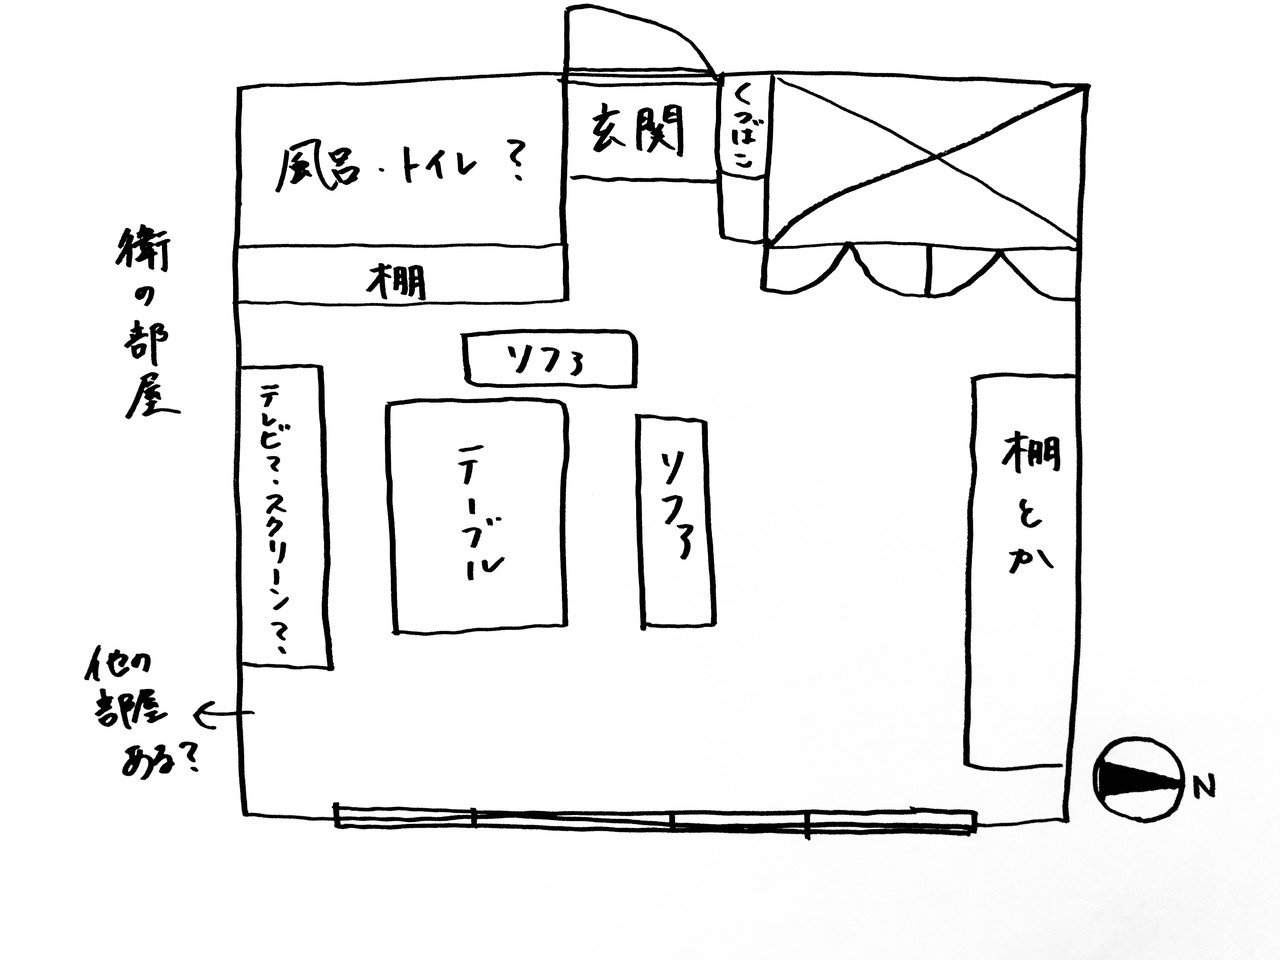 衛の部屋
風呂・トイレ?
玄関
くつばこ
棚
ソファ
テレビ?・スクリーン?・
テーブル
ソファ
棚とか
他の
部屋
ある?
N